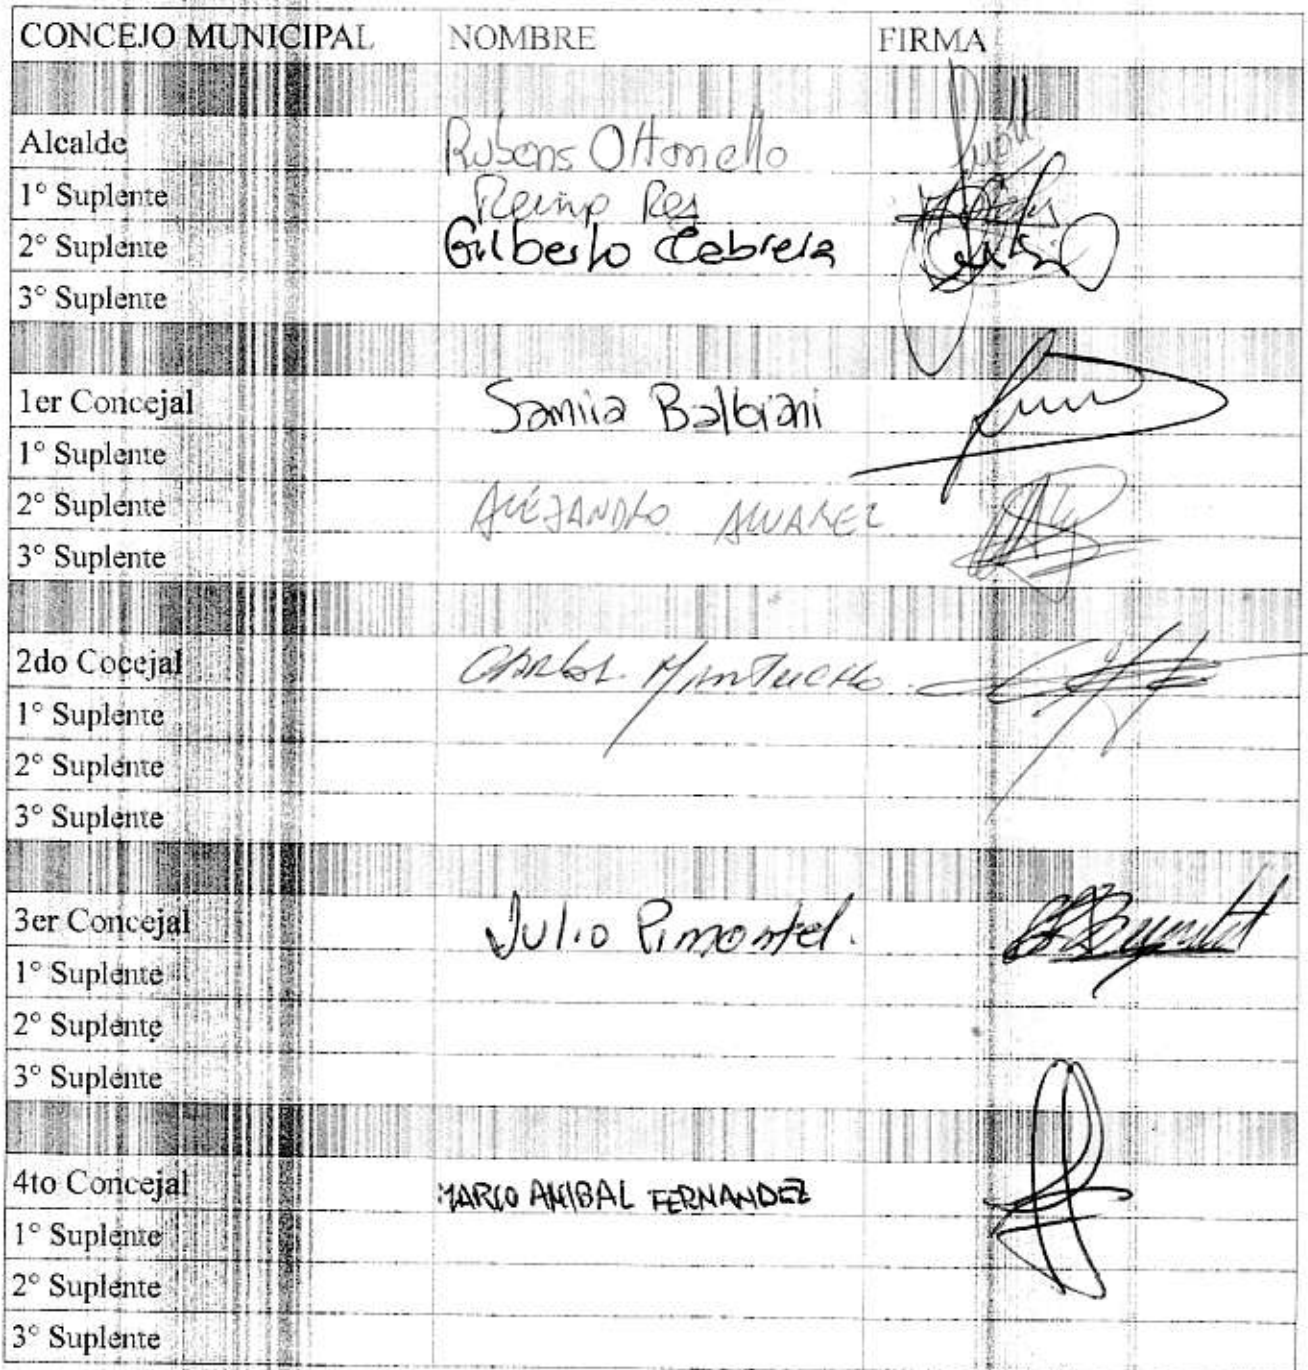 CONCEJO MUNICIPAL NOMBRE FIRMA
Alcalde Rubens Ottonello
1° Suplente
2° Suplente Gilberto Cabrera
3° Suplente
1er Concejal Samira Balbiani
1° Suplente
2° Suplente ALEJANDRO ALVAREZ
3° Suplente
2do Cocejal CARLOS
1° Suplente
2° Suplente
3° Suplente
3er Concejal Julio Pimentel.
1° Suplente
2° Suplente
3° Suplente
4to Concejal MARIO ANIBAL FERNANDEZ
1° Suplente
2° Suplente
3° Suplente